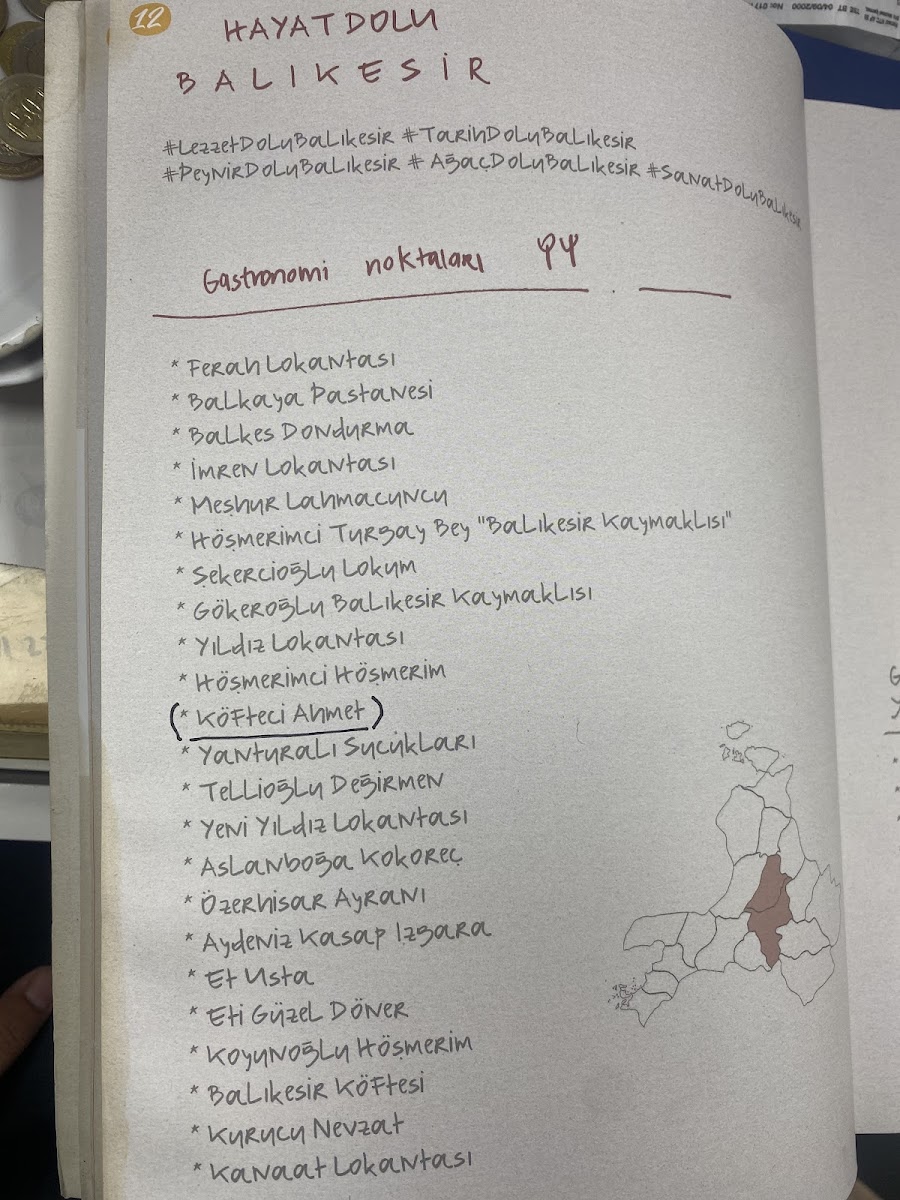 12
HAYAT DOLU
BALIKESİR
#LezzetDoluBalıkesir #TarihDoluBalıkesir
#PeyNirDoluBalıkesir # AğaçDoluBalıkesir #SanatDoluBalıkesir
Gastronomi noktaları
* Ferah Lokantası
* Balkaya Pastanesi
* Balkes Dondurma
* İmren Lokantası
* Meşhur Lahmacuncu
* Höşmerimci Turgay Bey "Balıkesir Kaymaklısı"
* Şekercioğlu Lokum
* Gökeroğlu Balıkesir Kaymaklısı
* Yıldız Lokantası
* Höşmerimci Höşmerim
(* Köfteci Ahmet)
* Yanturalı Sucukları
* Tellioğlu Değirmen
* Yeni Yıldız Lokantası
* Aslanboğa Kokoreç
* Özerhisar Ayranı
* Aydeniz Kasap Izgara
* Et Usta
* Eti Güzel Döner
* Koyunoğlu Höşmerim
* Balıkesir Köftesi
* Kurucu Nevzat
* Kanaat Lokantası